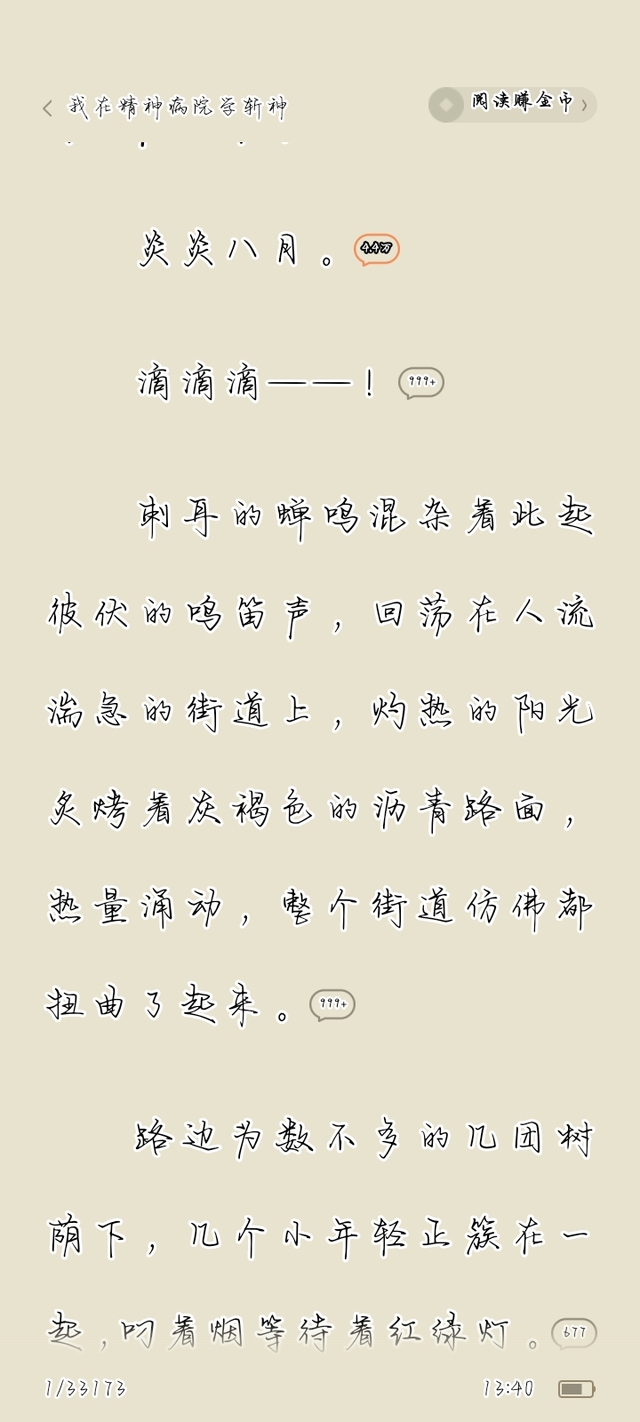 我在精神病院学斩神
阅读赚金币
炎炎八月。 4.4万
滴滴滴——！ 999+
刺耳的蝉鸣混杂着此起
彼伏的鸣笛声，回荡在人流
湍急的街道上，灼热的阳光
炙烤着灰褐色的沥青路面，
热量涌动，整个街道仿佛都
扭曲了起来。 999+
路边为数不多的几团树
荫下，几个小年轻正簇在一
起，叼着烟等待着红绿灯。 677
1/33173
13:40